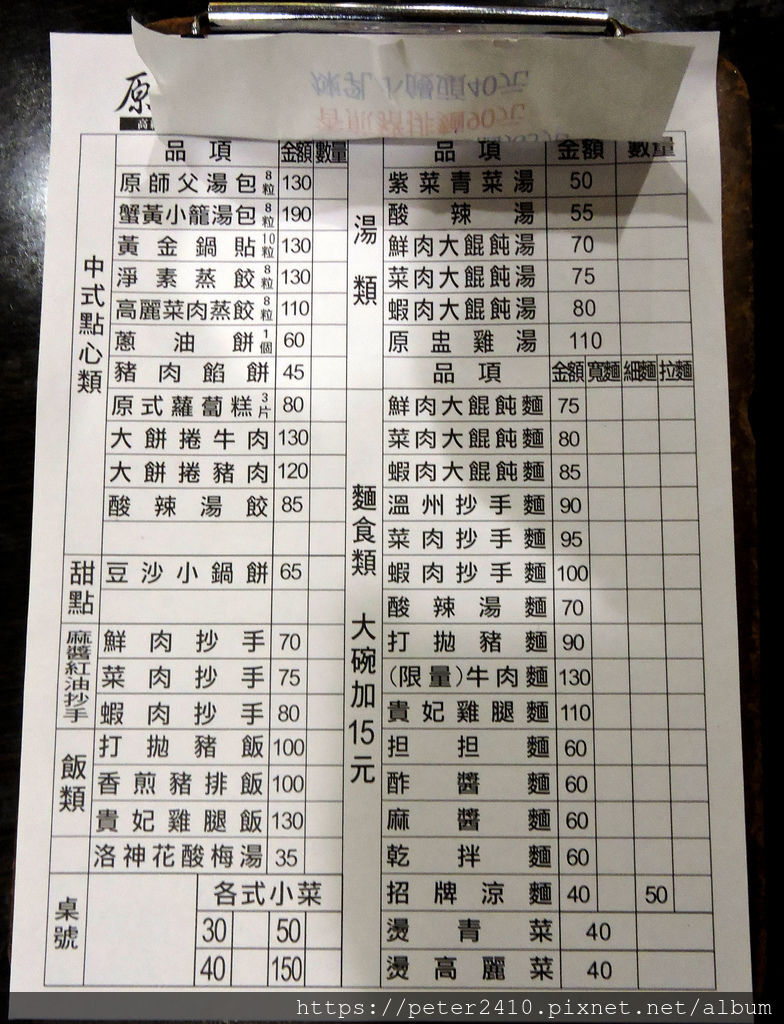 煉乳小饅頭40元
香煎豬排麵90元
原
品項 金額 數量
中式點心類
原師父湯包 8粒 130
蟹黃小籠湯包 8粒 190
黃金鍋貼 10粒 130
淨素蒸餃 8粒 130
高麗菜肉蒸餃 8粒 110
蔥油餅 1個 60
豬肉餡餅 45
原式蘿蔔糕 3片 80
大餅捲牛肉 130
大餅捲豬肉 120
酸辣湯餃 85
甜點
豆沙小鍋餅 65
麻醬紅油抄手
鮮肉抄手 70
菜肉抄手 75
蝦肉抄手 80
飯類
打拋豬飯 100
香煎豬排飯 100
貴妃雞腿飯 130
洛神花酸梅湯 35
桌號
各式小菜
30 50
40 150
品項 金額 數量
湯類
紫菜青菜湯 50
酸辣湯 55
鮮肉大餛飩湯 70
菜肉大餛飩湯 75
蝦肉大餛飩湯 80
原盅雞湯 110
品項 金額 寬麵 細麵 拉麵
麵食類 大碗加15元
鮮肉大餛飩麵 75
菜肉大餛飩麵 80
蝦肉大餛飩麵 85
溫州抄手麵 90
菜肉抄手麵 95
蝦肉抄手麵 100
酸辣湯麵 70
打拋豬麵 90
(限量)牛肉麵 130
貴妃雞腿麵 110
担担麵 60
酢醬麵 60
麻醬麵 60
乾拌麵 60
招牌涼麵 40 50
燙青菜 40
燙高麗菜 40
https://peter2410.pixnet.net/album